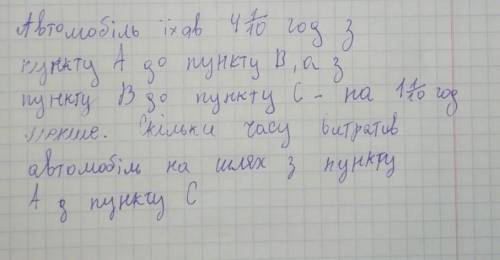 Автомобіль їхав 4 1/10 год з
пункту А до пункту В, а з
пункту В до пункту С - на 1 1/10 год
менше. Скільки часу витратив
автомобіль на шлях з пункту
А д пункту С